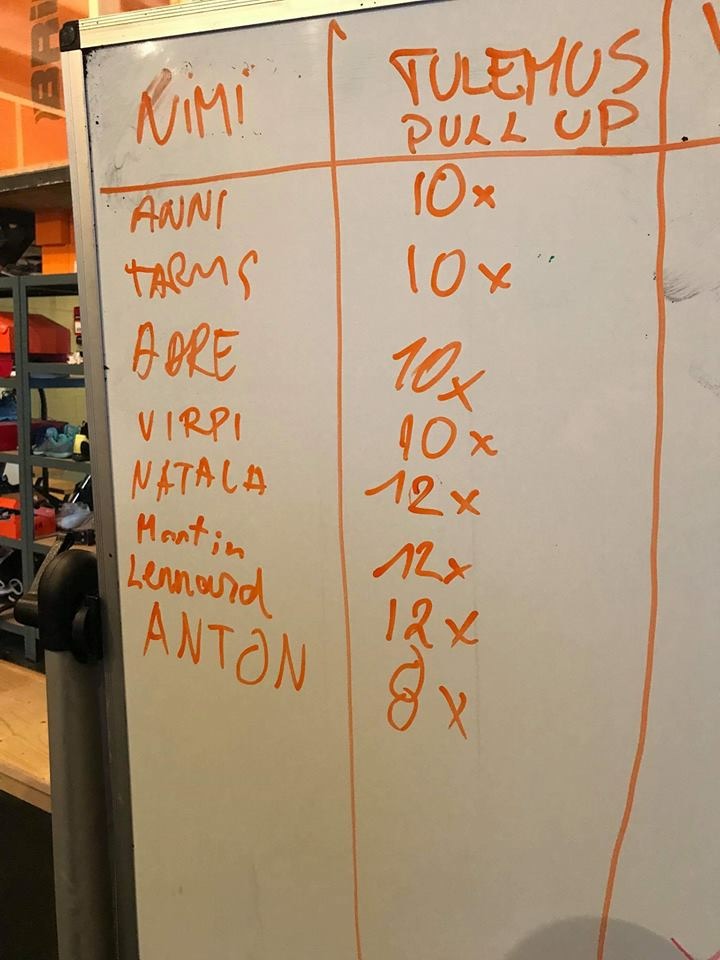 NIMI TULEMUS
PULL UP
ANNI 10x
TARMS 10x
10x
VIRPI 10x
NATALA 12x
Martin 12x
Lennard 12x
ANTON 8x